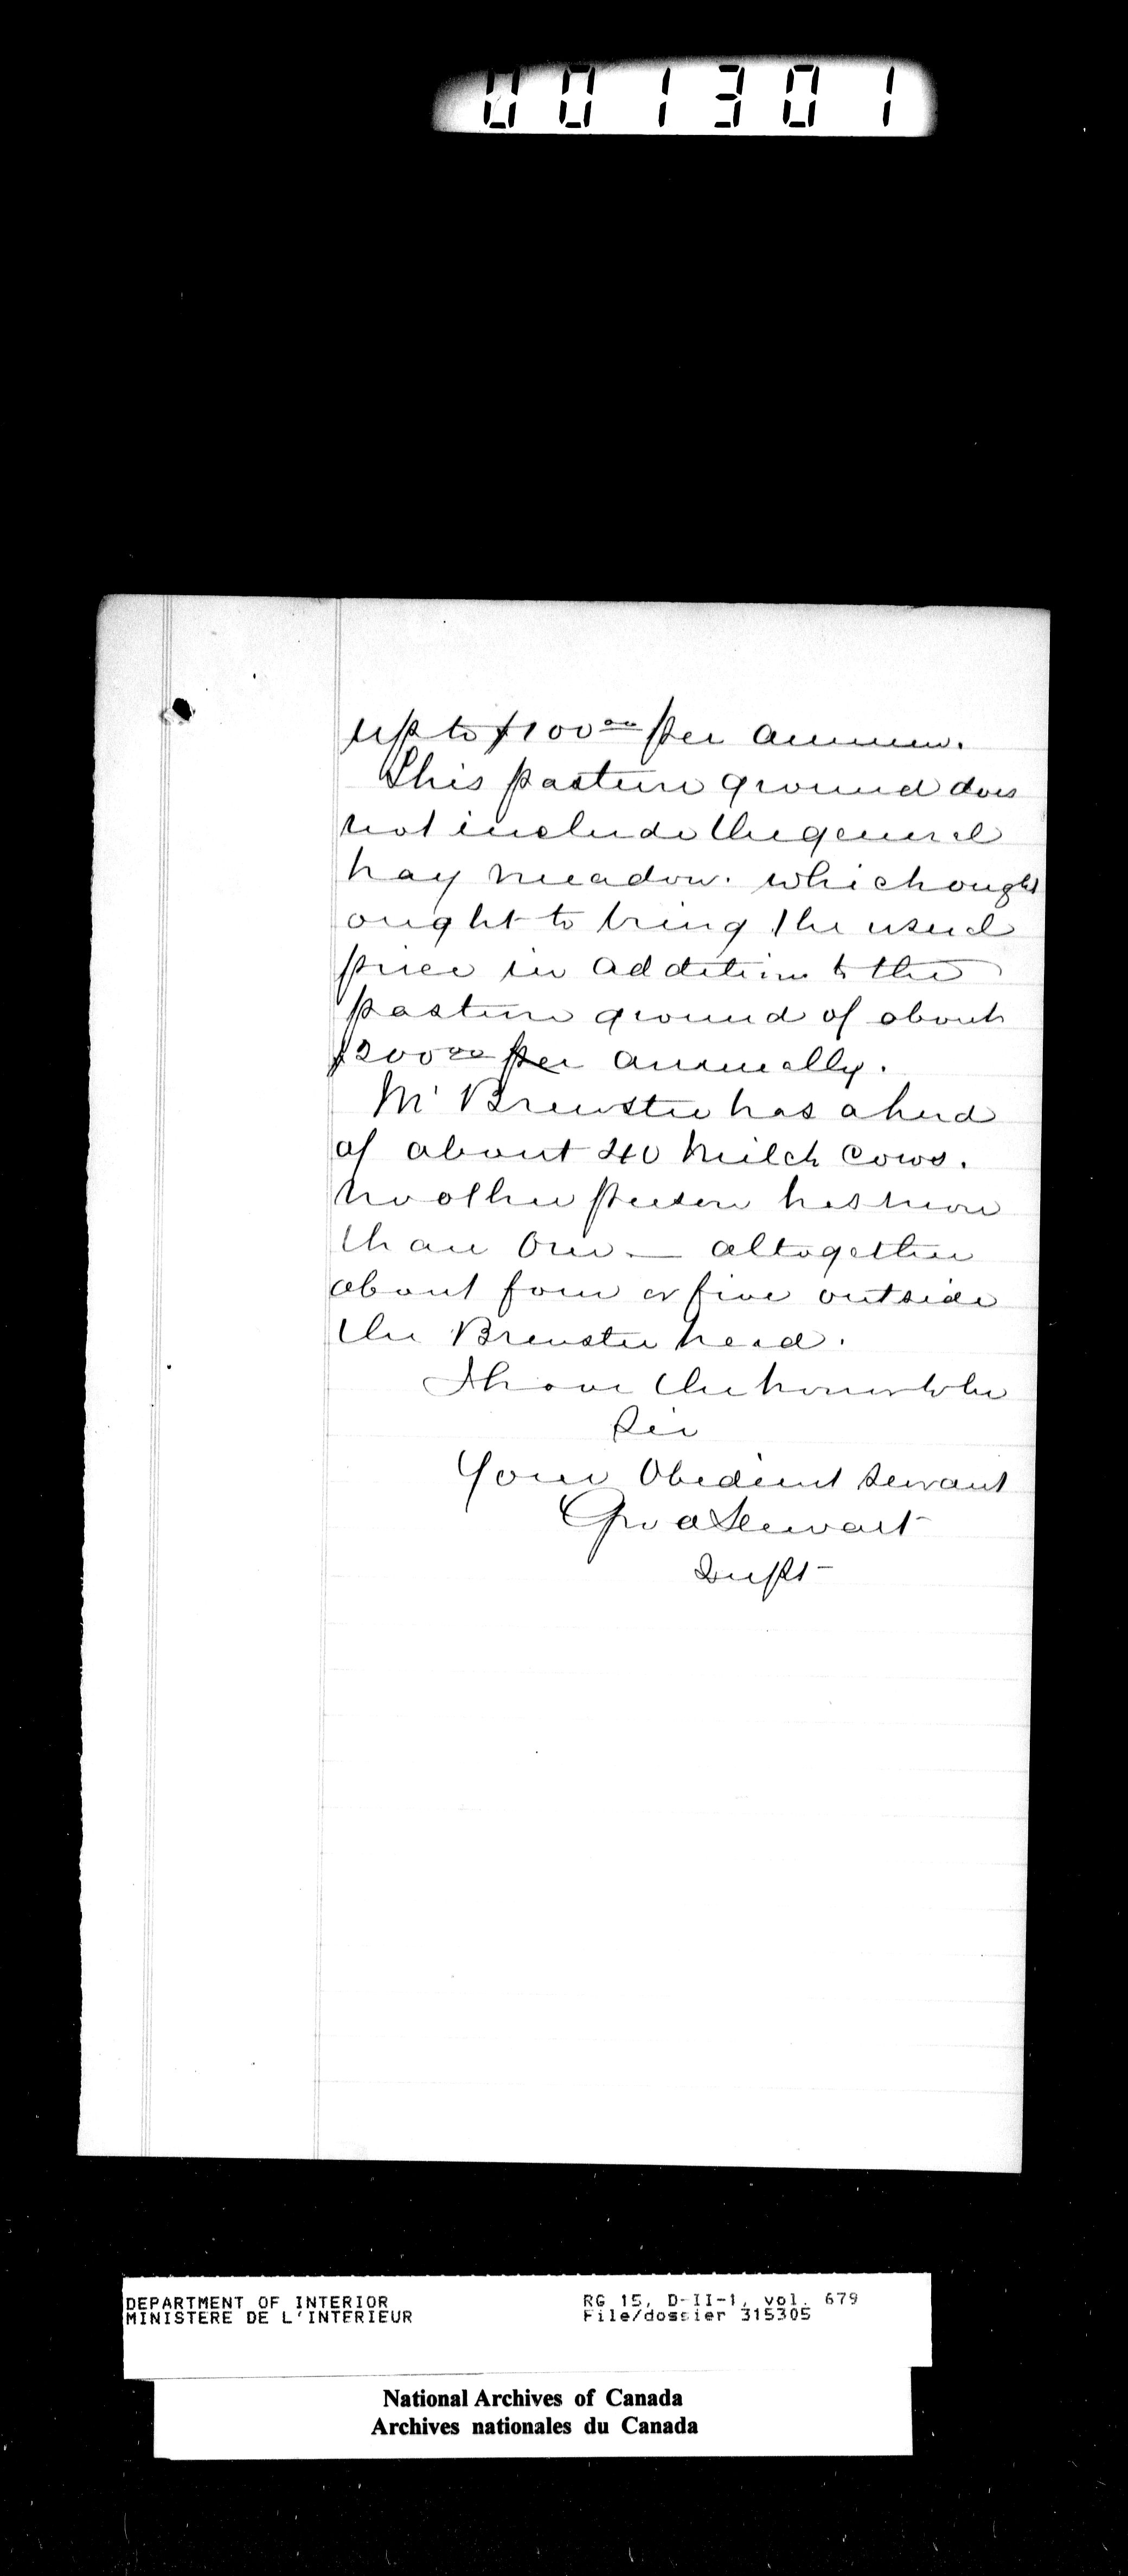 001301
up to $100.00 per annum.
This pasture ground does
not include the general
hay meadow. which ought
ought to bring the usual
price in addition to the
pasture ground of about
$200.00 per annually.
Mr Brewster has a herd
of about 40 milch cows.
no other person has more
than one — altogether
about four or five outside
the Brewster herd.
I have the honor to be
Sir
Your Obedient servant
Geo A Stewart
Supt
DEPARTMENT OF INTERIOR
MINISTERE DE L'INTERIEUR
RG 15, D-II-1, vol. 679
File/dossier 315305
National Archives of Canada
Archives nationales du Canada